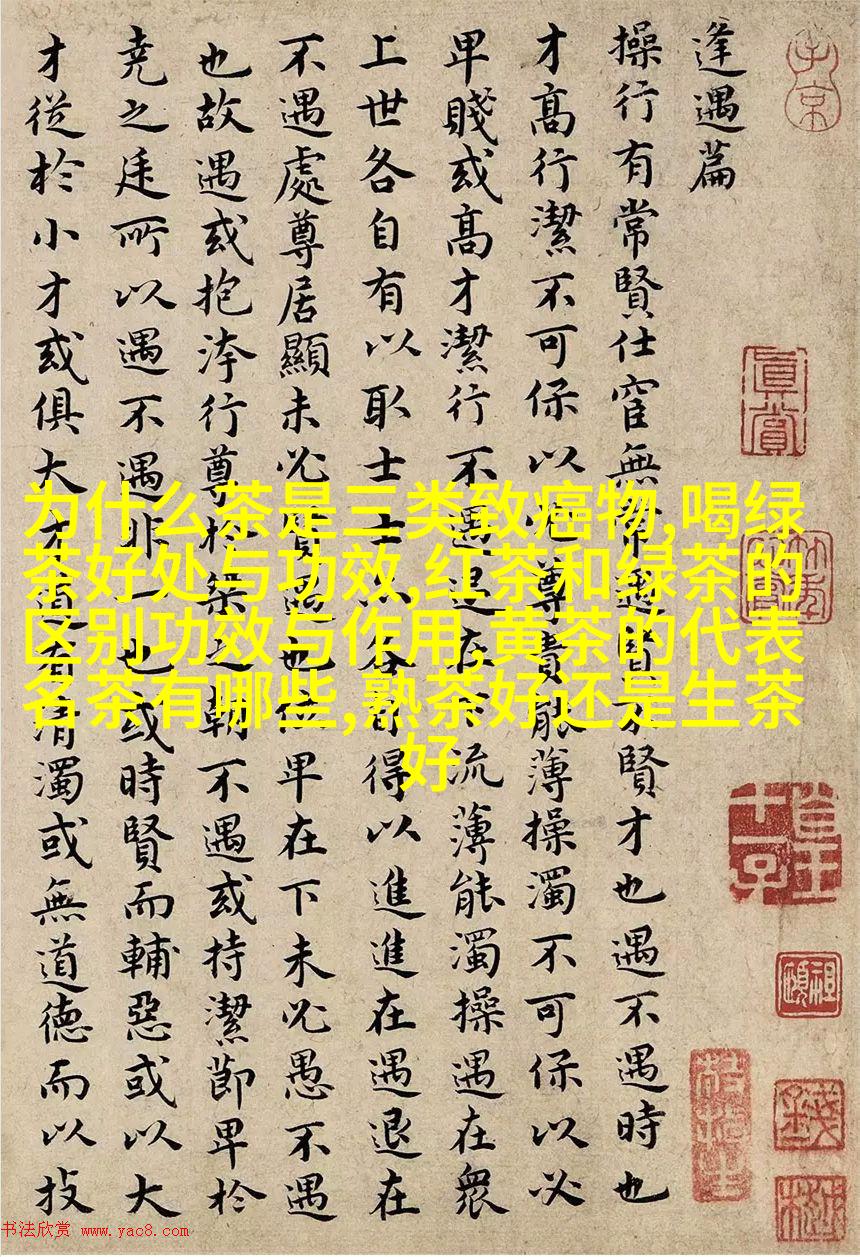 逢遇篇
操行有常賢仕宦無常遇賢不賢才也遇不遇時也
才高行潔不可保以必尊貴能薄操濁不可保以必
卑賤或高才潔行不遇退在下流薄能濁操遇在衆
上世各自有以取士士亦各自得以進進在遇退在
不遇處尊居顯未必賢遇也位卑在下未必愚不遇
也故遇或抱洿行尊於桀之朝不遇或持潔節卑於
堯之廷所以遇不遇非一也或時賢而輔惡或以大
才從於小才或俱大才道有清濁或無道德而以技
子京
真賞
为什么茶是三类致癌物,喝绿
茶好处与功效,红茶和绿茶的
区别功效与作用,黄茶的代表
名茶有哪些,熟茶好还是生茶
好
书法欣赏 www.yac8.com